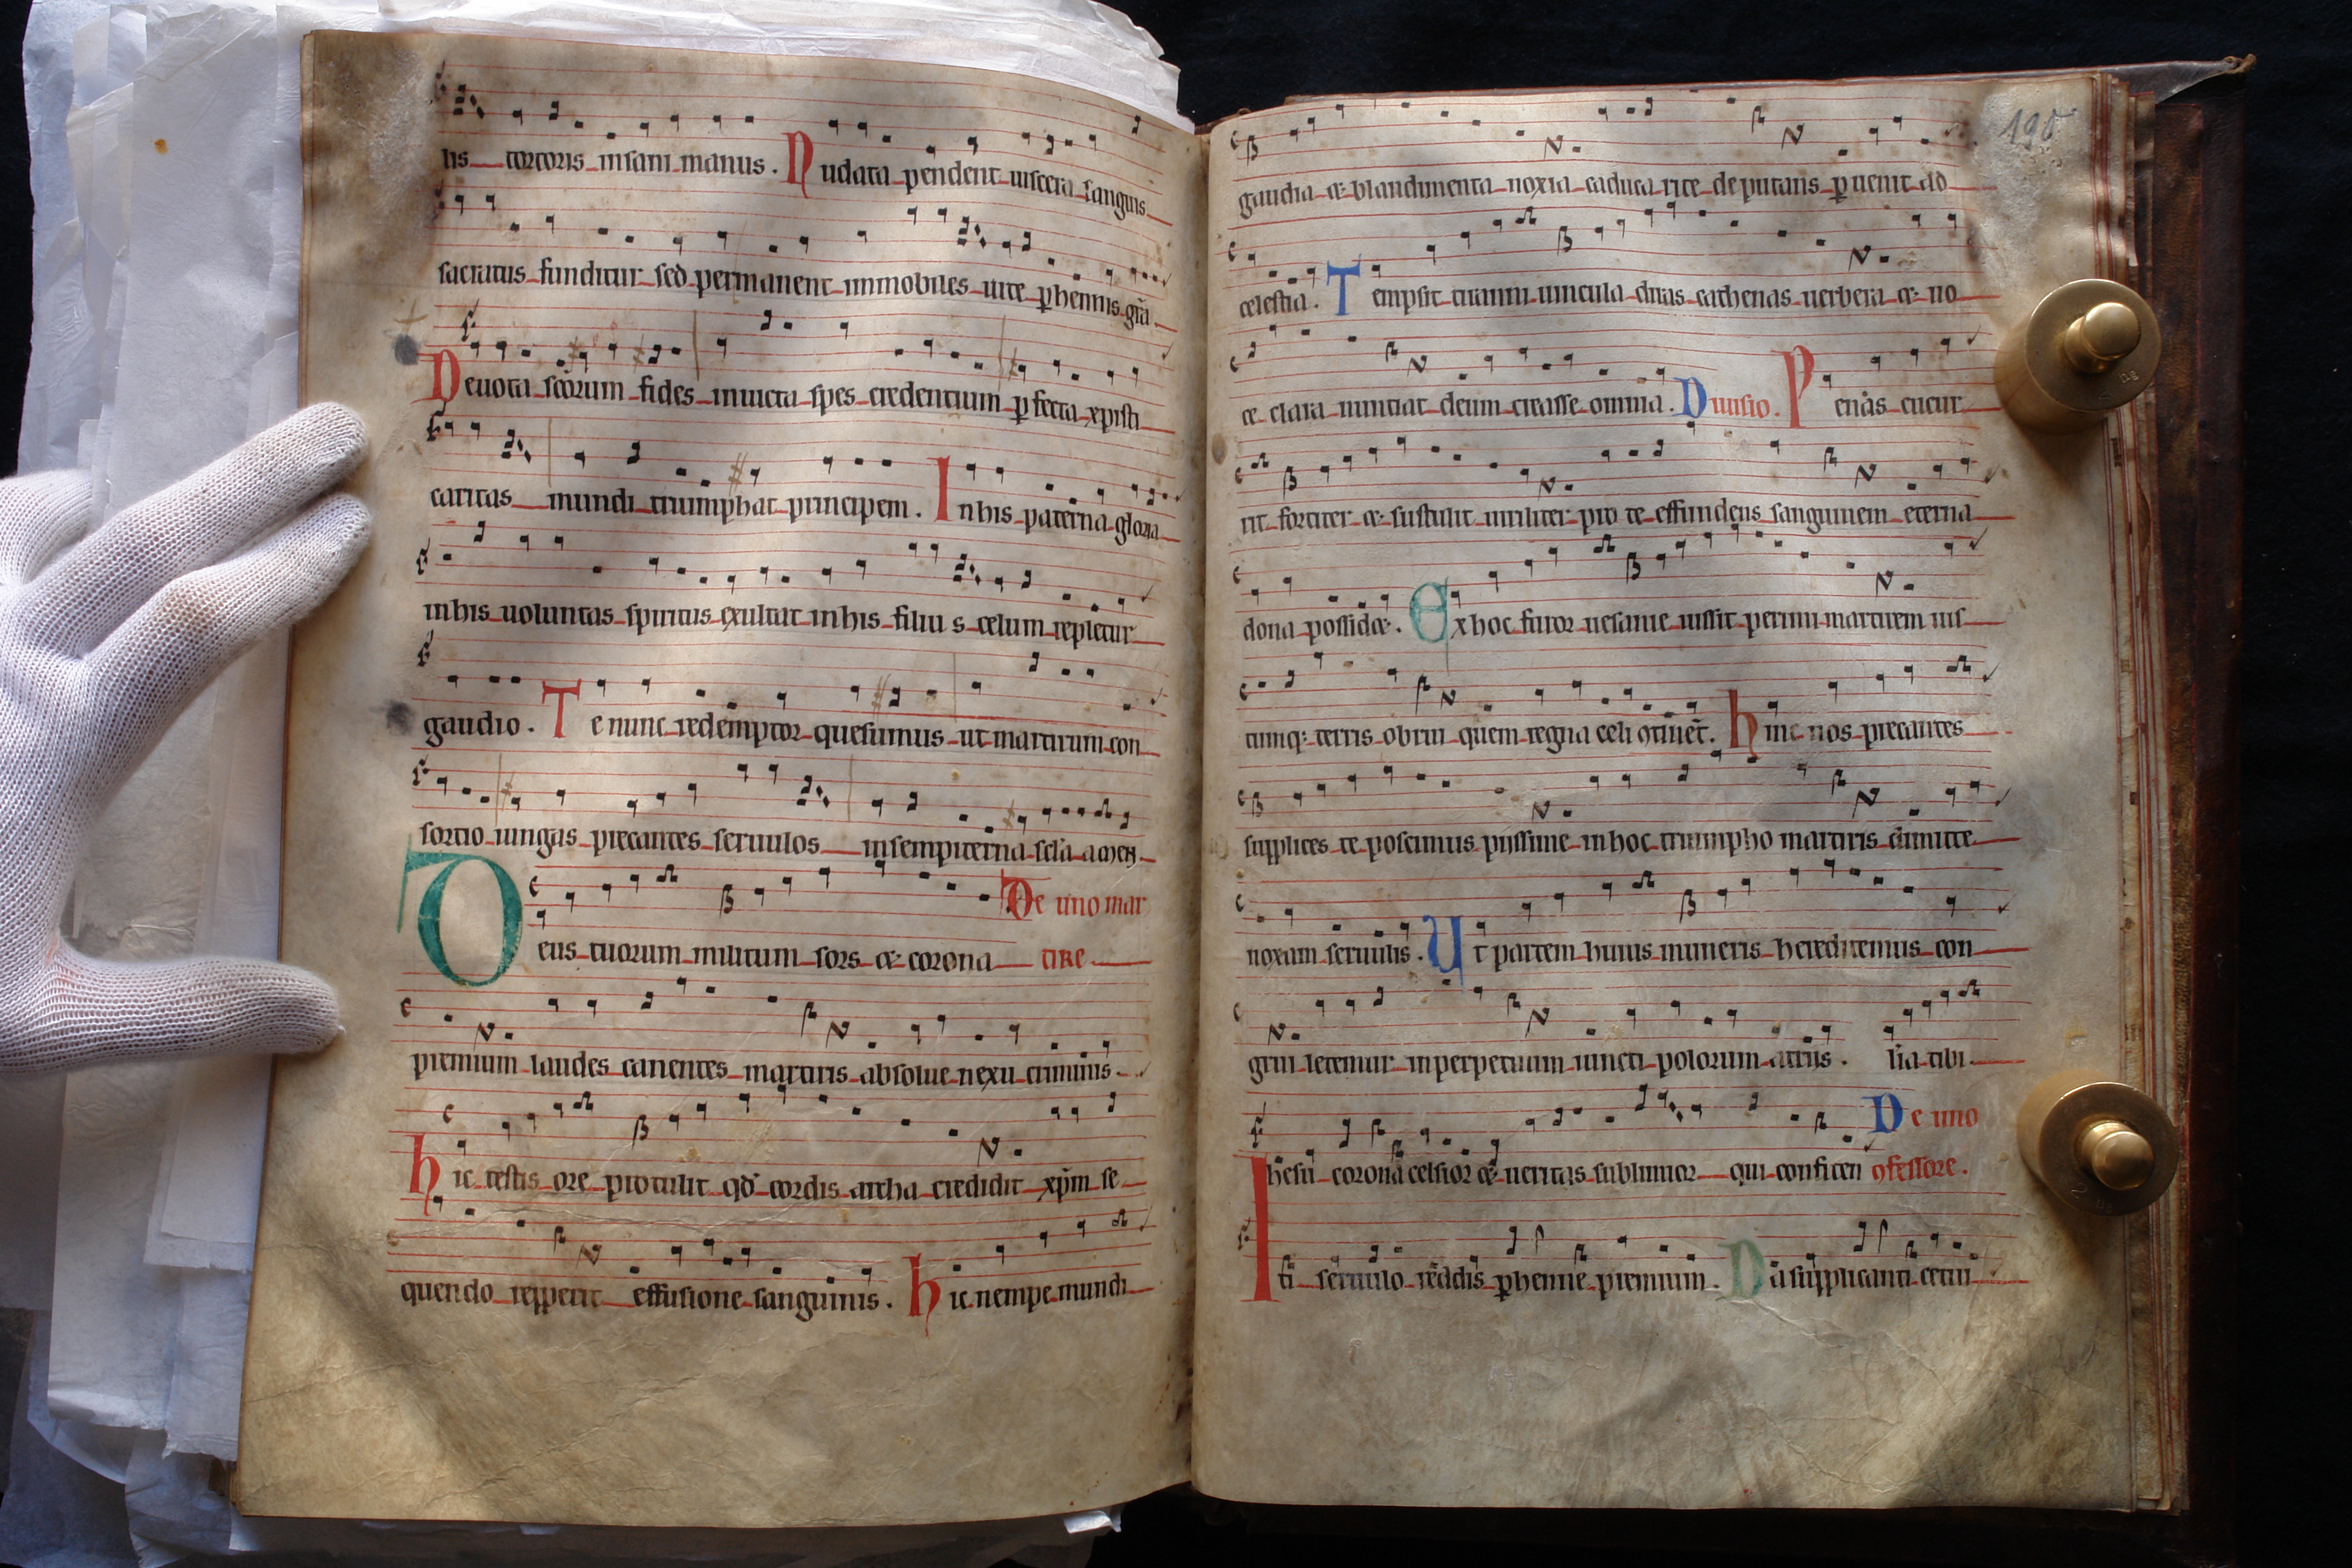 lis tortoris insani manus. Nudata pendent uiscera sanguis
sacratus funditur sed permanent inmobiles uite phennis grã
Deuota scõrum fides inuicta spes credentium pfecta xpisti
caritas mundi triumphat principem. In his paterna gloria
in his uoluntas spiritus exultat in his filius celum repletur
gaudio. Te nunc redemptor quesumus ut martirum con
sortio iungas precantes seruulos in sempiterna scla amen
De uno mar
Deus tuorum militum sors et corona tire
premium laudes canentes martiris absolue nexu criminis.
hic testis ore protulit qd cordis archa credidit xpm se
quendo repperit effusione sanguinis. hic nempe mundi
190
gaudia et blandimenta noxia caduca rite deputans puenit ad
celestia. Tempsit tiranni uincula diras cathenas uerbera et uo
ce clara nuntiat deum creasse omnia. Diuisio. Penas cucur
rit fortiter et sustulit uiriliter pro te effundens sanguinem eterna
dona possidet. Ex hoc furor uesanie iussit perimi martirem ius
tumq; terris obrui quem regna celi 9tinet. hinc nos precantes
supplices te poscimus piissime in hoc triumpho martiris dimitte
noxam seruulis. Ut partem huius muneris hereditemus con
grui letemur in perpetuum iuncti polorum atriis. lia tibi
De uno
Ihesu corona celsior et ueritas sublimior qui confiten 9fessore.
ti seruulo reddis phenne premium. Da supplicanti cetui